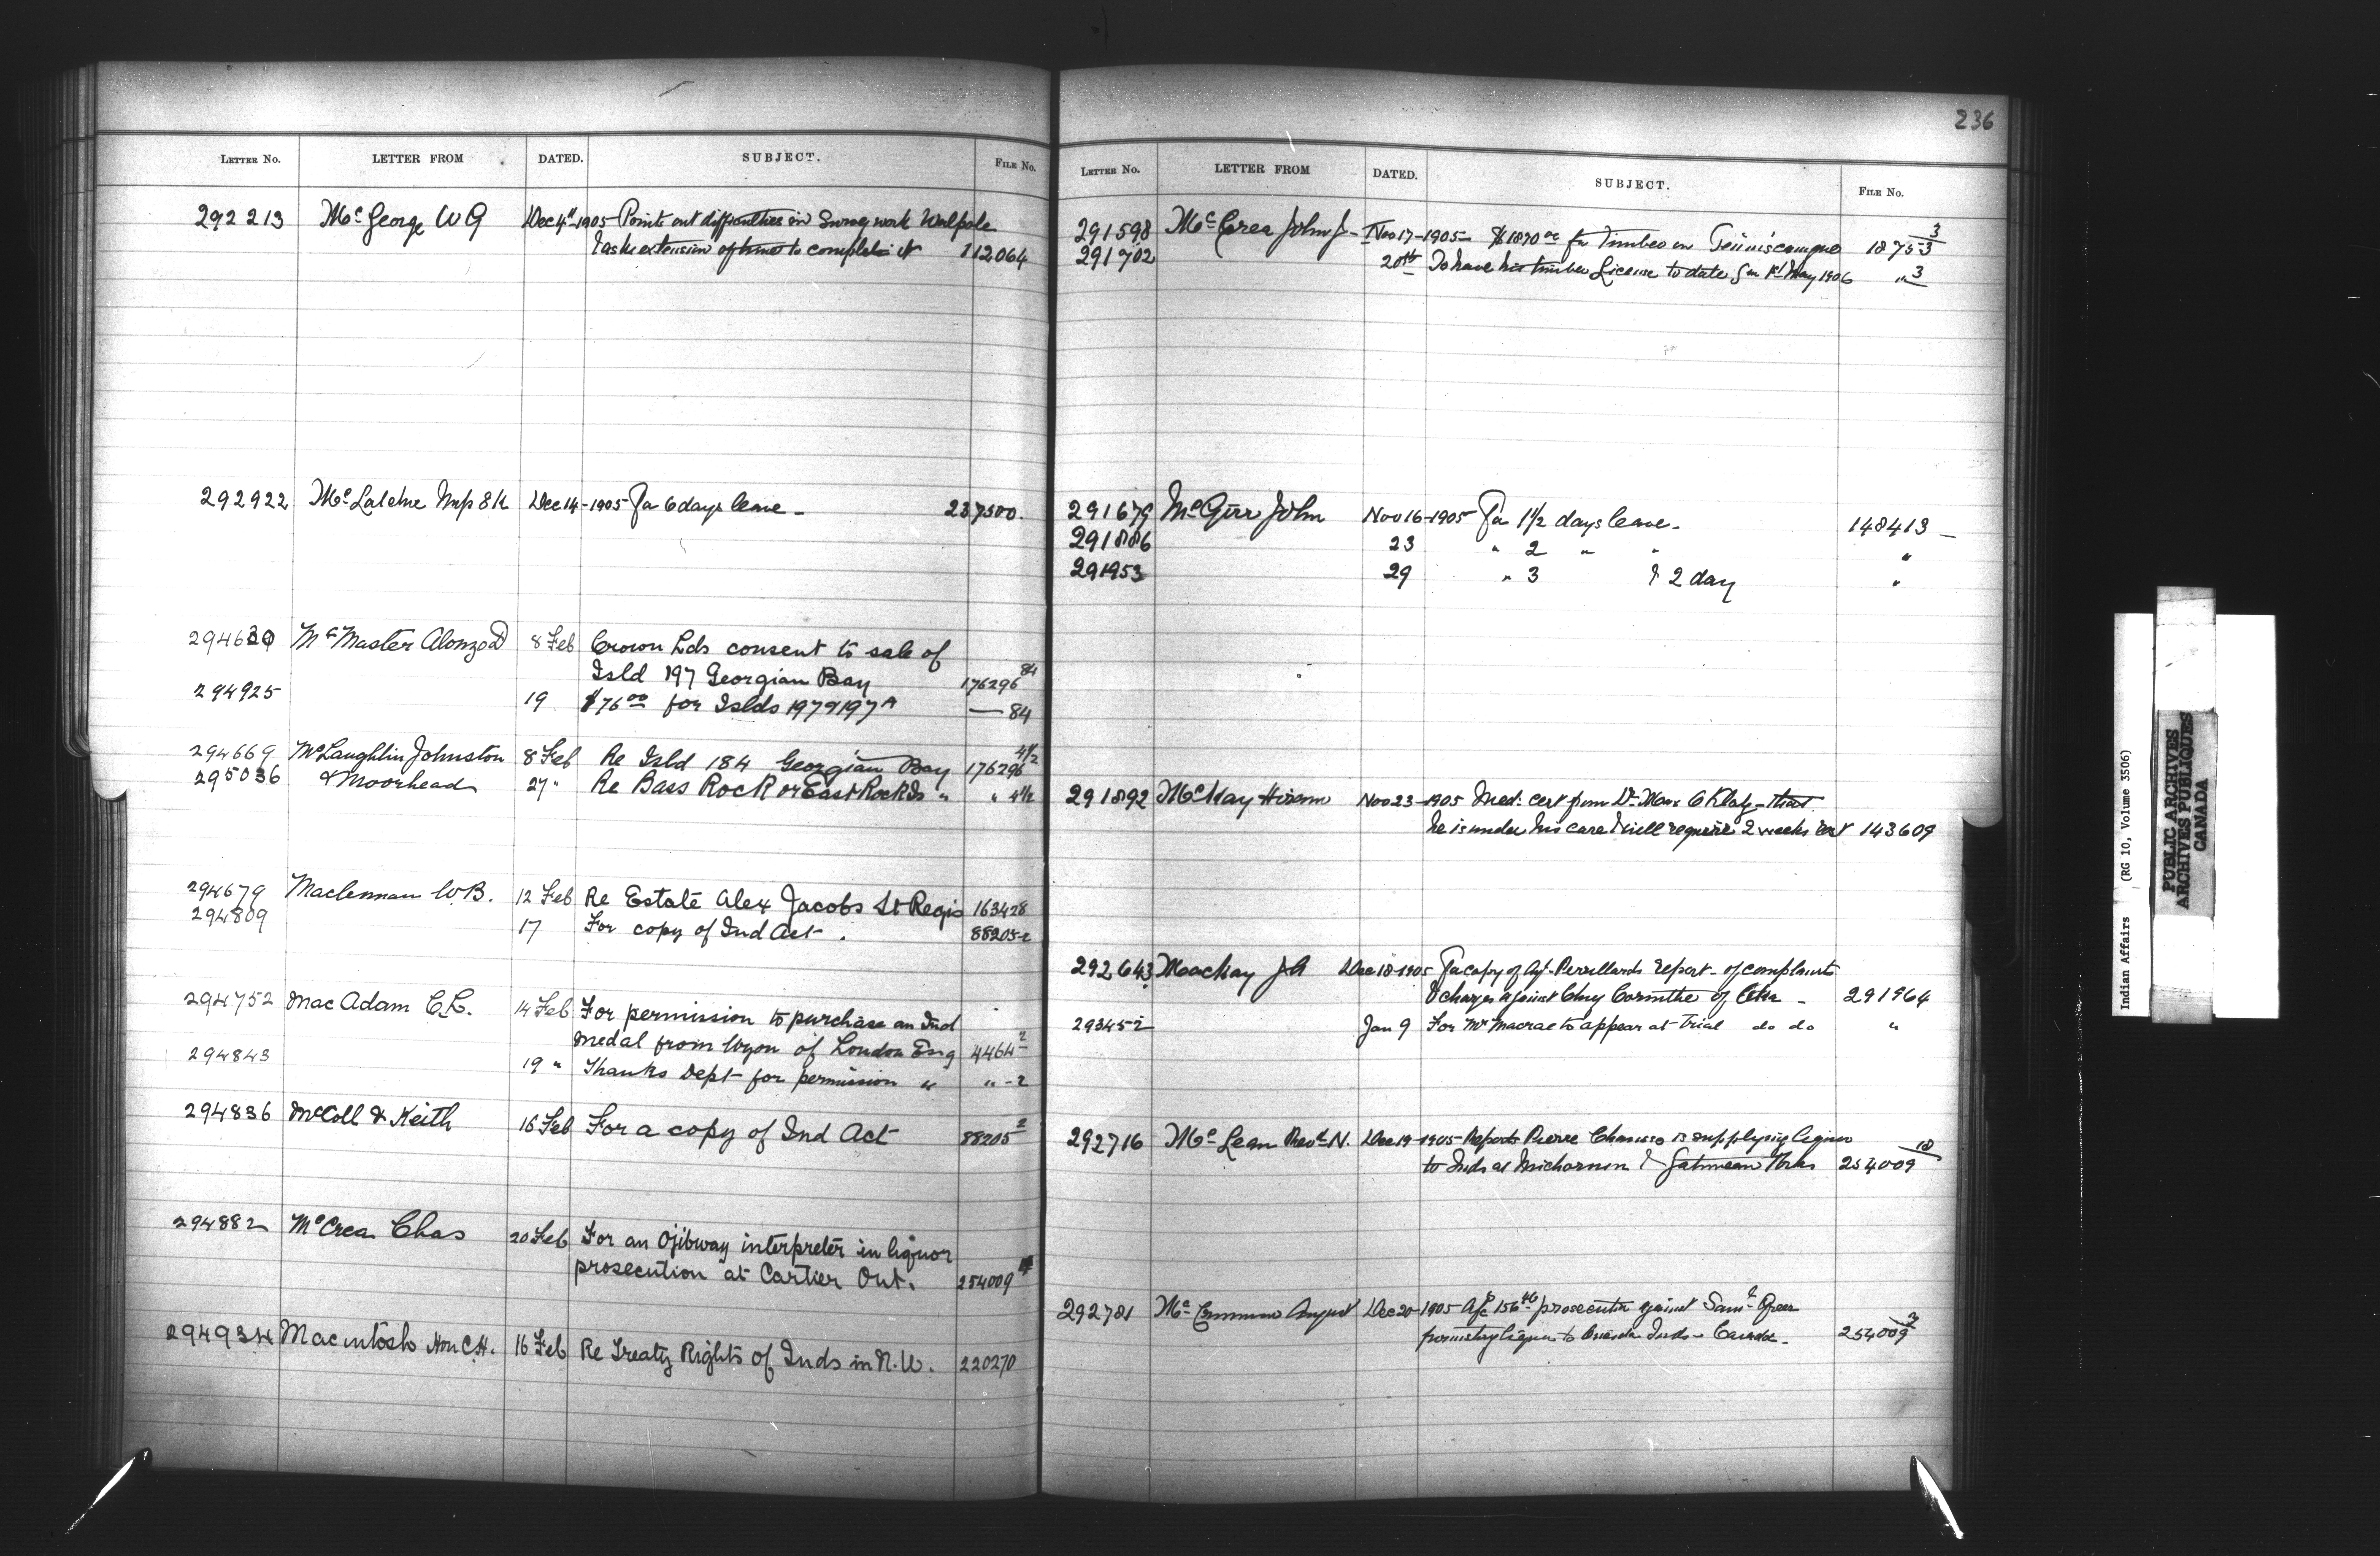 LETTER No. LETTER FROM DATED. SUBJECT. FILE No.
292213 McGeorge W G Dec 4th 1905 Points out difficulties in Survey work Walpole
& asks extension of time to complete it 112064
292922 Dec 14-1905 For 6 days leave - 237500.
294630 McMaster Alonzo D 8 Feb Crown Lds consent to sale of
Isld 197 Georgian Bay 176296 84
294925 19 $76 00 for Islds 197 & 197A — 84
294669 McLaughlin Johnston 8 Feb Re Isld 184 Georgian Bay 176296 4½
295036 & Moorhead 27 " Re Bass Rock or East Rock Is " " 4½
294679 Maclennan W.B. 12 Feb Re Estate Alex Jacobs St Regis 163428
294809 17 For copy of Ind Act. 88205-2
294752 MacAdam C.L. 14 Feb For permission to purchase an Ind
medal from Wyon of London Eng 4464-2
294843 19 " Thanks Dept for permission " " -2
294836 McColl & Keith 16 Feb For a copy of Ind Act 88205 2
294882 McCrea Chas 20 Feb For an Ojibway interpreter in liquor
prosecution at Cartier Ont. 254009
294934 Macintosh Hon C.H. 16 Feb Re Treaty Rights of Inds in N.W. 220270
236
LETTER No. LETTER FROM DATED. SUBJECT. FILE No.
291598 McCrea John J- Nov 17-1905- $1870 00 for Timber on Temiscamque 18753 3
291702 20th To have his timber License to date from 1st May 1906 " 3
291679 McGirr John Nov 16-1905 For 1½ days leave - 148413 -
291886 23 " 2 " " "
291953 29 " 3 & 2 day "
291892 McKay Hiram Nov 23-1905 Med: cert from Dr. that
he is under his care & will require 2 weeks rest 143609
292643 Mackay J A Dec 18-1905 For copy of report - of complaints
& charges against Chry Corinthe of Oka - 291964
293452 Jan 9 For Mr Macrae to appear at trial do do "
292716 McLean Revd. N. Dec 19-1905 Reports Pierre is supplying liquor
to Inds at & 254009 18
292781 August Dec 20-1905 a/c 156 prosecution against Saml.
furnishing liquor to Oneida Inds - 254009 3
Indian Affairs (RG 10, Volume 3506)
PUBLIC ARCHIVES
ARCHIVES PUBLIQUES
CANADA